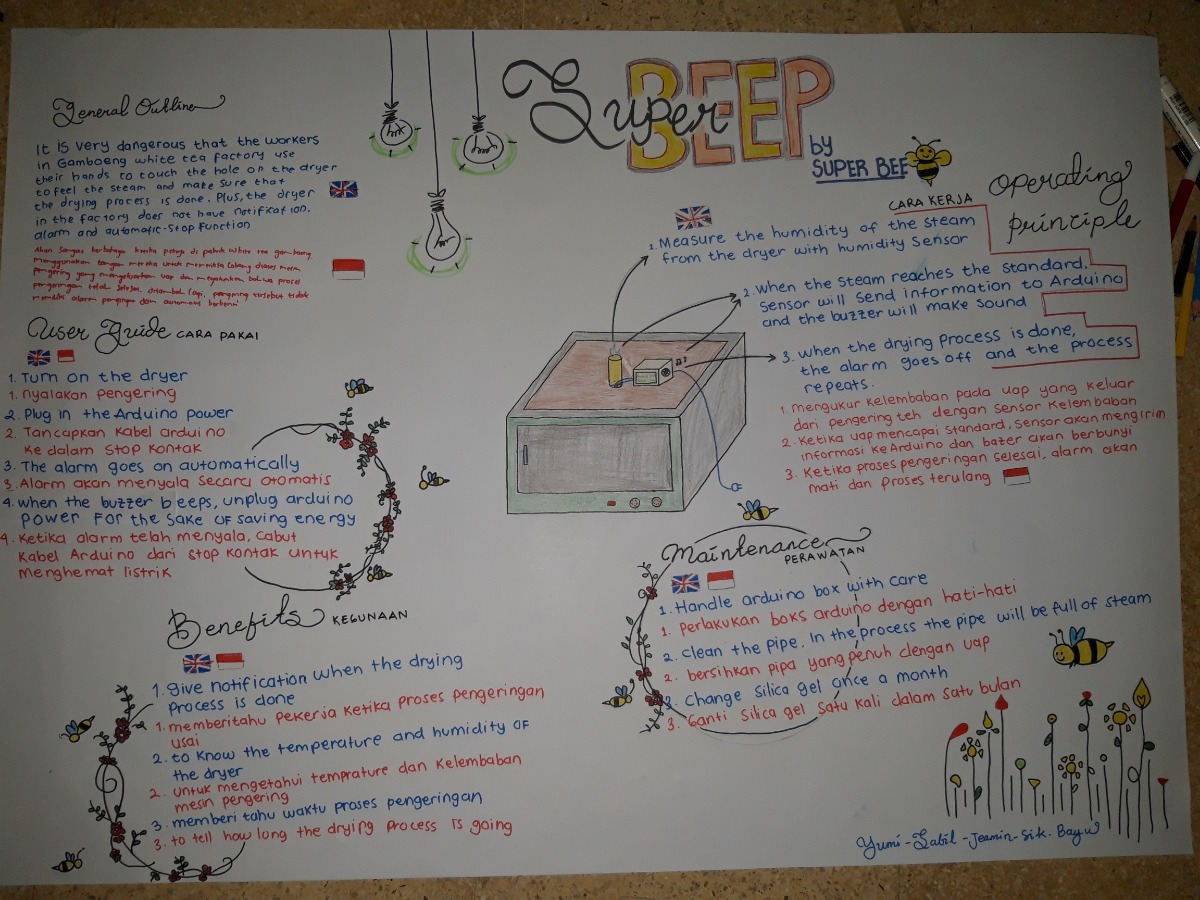 Super BEEP
by
SUPER BEE
General Outline
It is very dangerous that the workers
in Gamboeng white tea factory use
their hands to touch the hole on the dryer
to feel the steam and make sure that
the drying process is done. Plus, the dryer
in the factory does not have notification.
alarm and automatic-stop function
menggunakan tangan mereka untuk memeriksa lubang diatas mesin
pengering yang mengeluarkan uap dan meyakinkan bahwa proses
pengeringan telah selesai. pengering tersebut tidak
memiliki alarm dan automatis berhenti
User Guide CARA PAKAI
1. Turn on the dryer
1. nyalakan pengering
2. Plug in the Arduino power
2. Tancapkan kabel arduino
ke dalam stop kontak
3. The alarm goes on automatically
3. Alarm akan menyala secara otomatis
4. when the buzzer beeps, unplug arduino
power for the sake of saving energy
4. Ketika alarm telah menyala, cabut
kabel Arduino dari stop kontak untuk
menghemat listrik
Benefits KEGUNAAN
1. give notification when the drying
process is done
1. memberitahu pekerja ketika proses pengeringan
usai
2. to know the temperature and humidity of
the dryer
2. untuk mengetahui temprature dan kelembaban
mesin pengering
3. memberi tahu waktu proses pengeringan
3. to tell how long the drying process is going
operating
principle
CARA KERJA
1. Measure the humidity of the steam
from the dryer with humidity sensor
2. when the steam reaches the standard,
sensor will send information to Arduino
and the buzzer will make sound
3. when the drying process is done,
the alarm goes off and the process
repeats.
1. mengukur kelembaban pada uap yang keluar
dari pengering teh dengan sensor kelembaban
2. Ketika uap mencapai standard, sensor akan mengirim
informasi ke Arduino dan bazer akan berbunyi
3. Ketika proses pengeringan selesai, alarm akan
mati dan proses terulang
Maintenance
PERAWATAN
1. Handle arduino box with care
1. perlakukan boks arduino dengan hati-hati
2. clean the pipe. In the process the pipe will be full of steam
2. bersihkan pipa yang penuh dengan uap
3. Change silica gel once a month
3. Ganti silica gel satu kali dalam satu bulan
Yumi - Sabil - Jeamin - Sik. Bayu